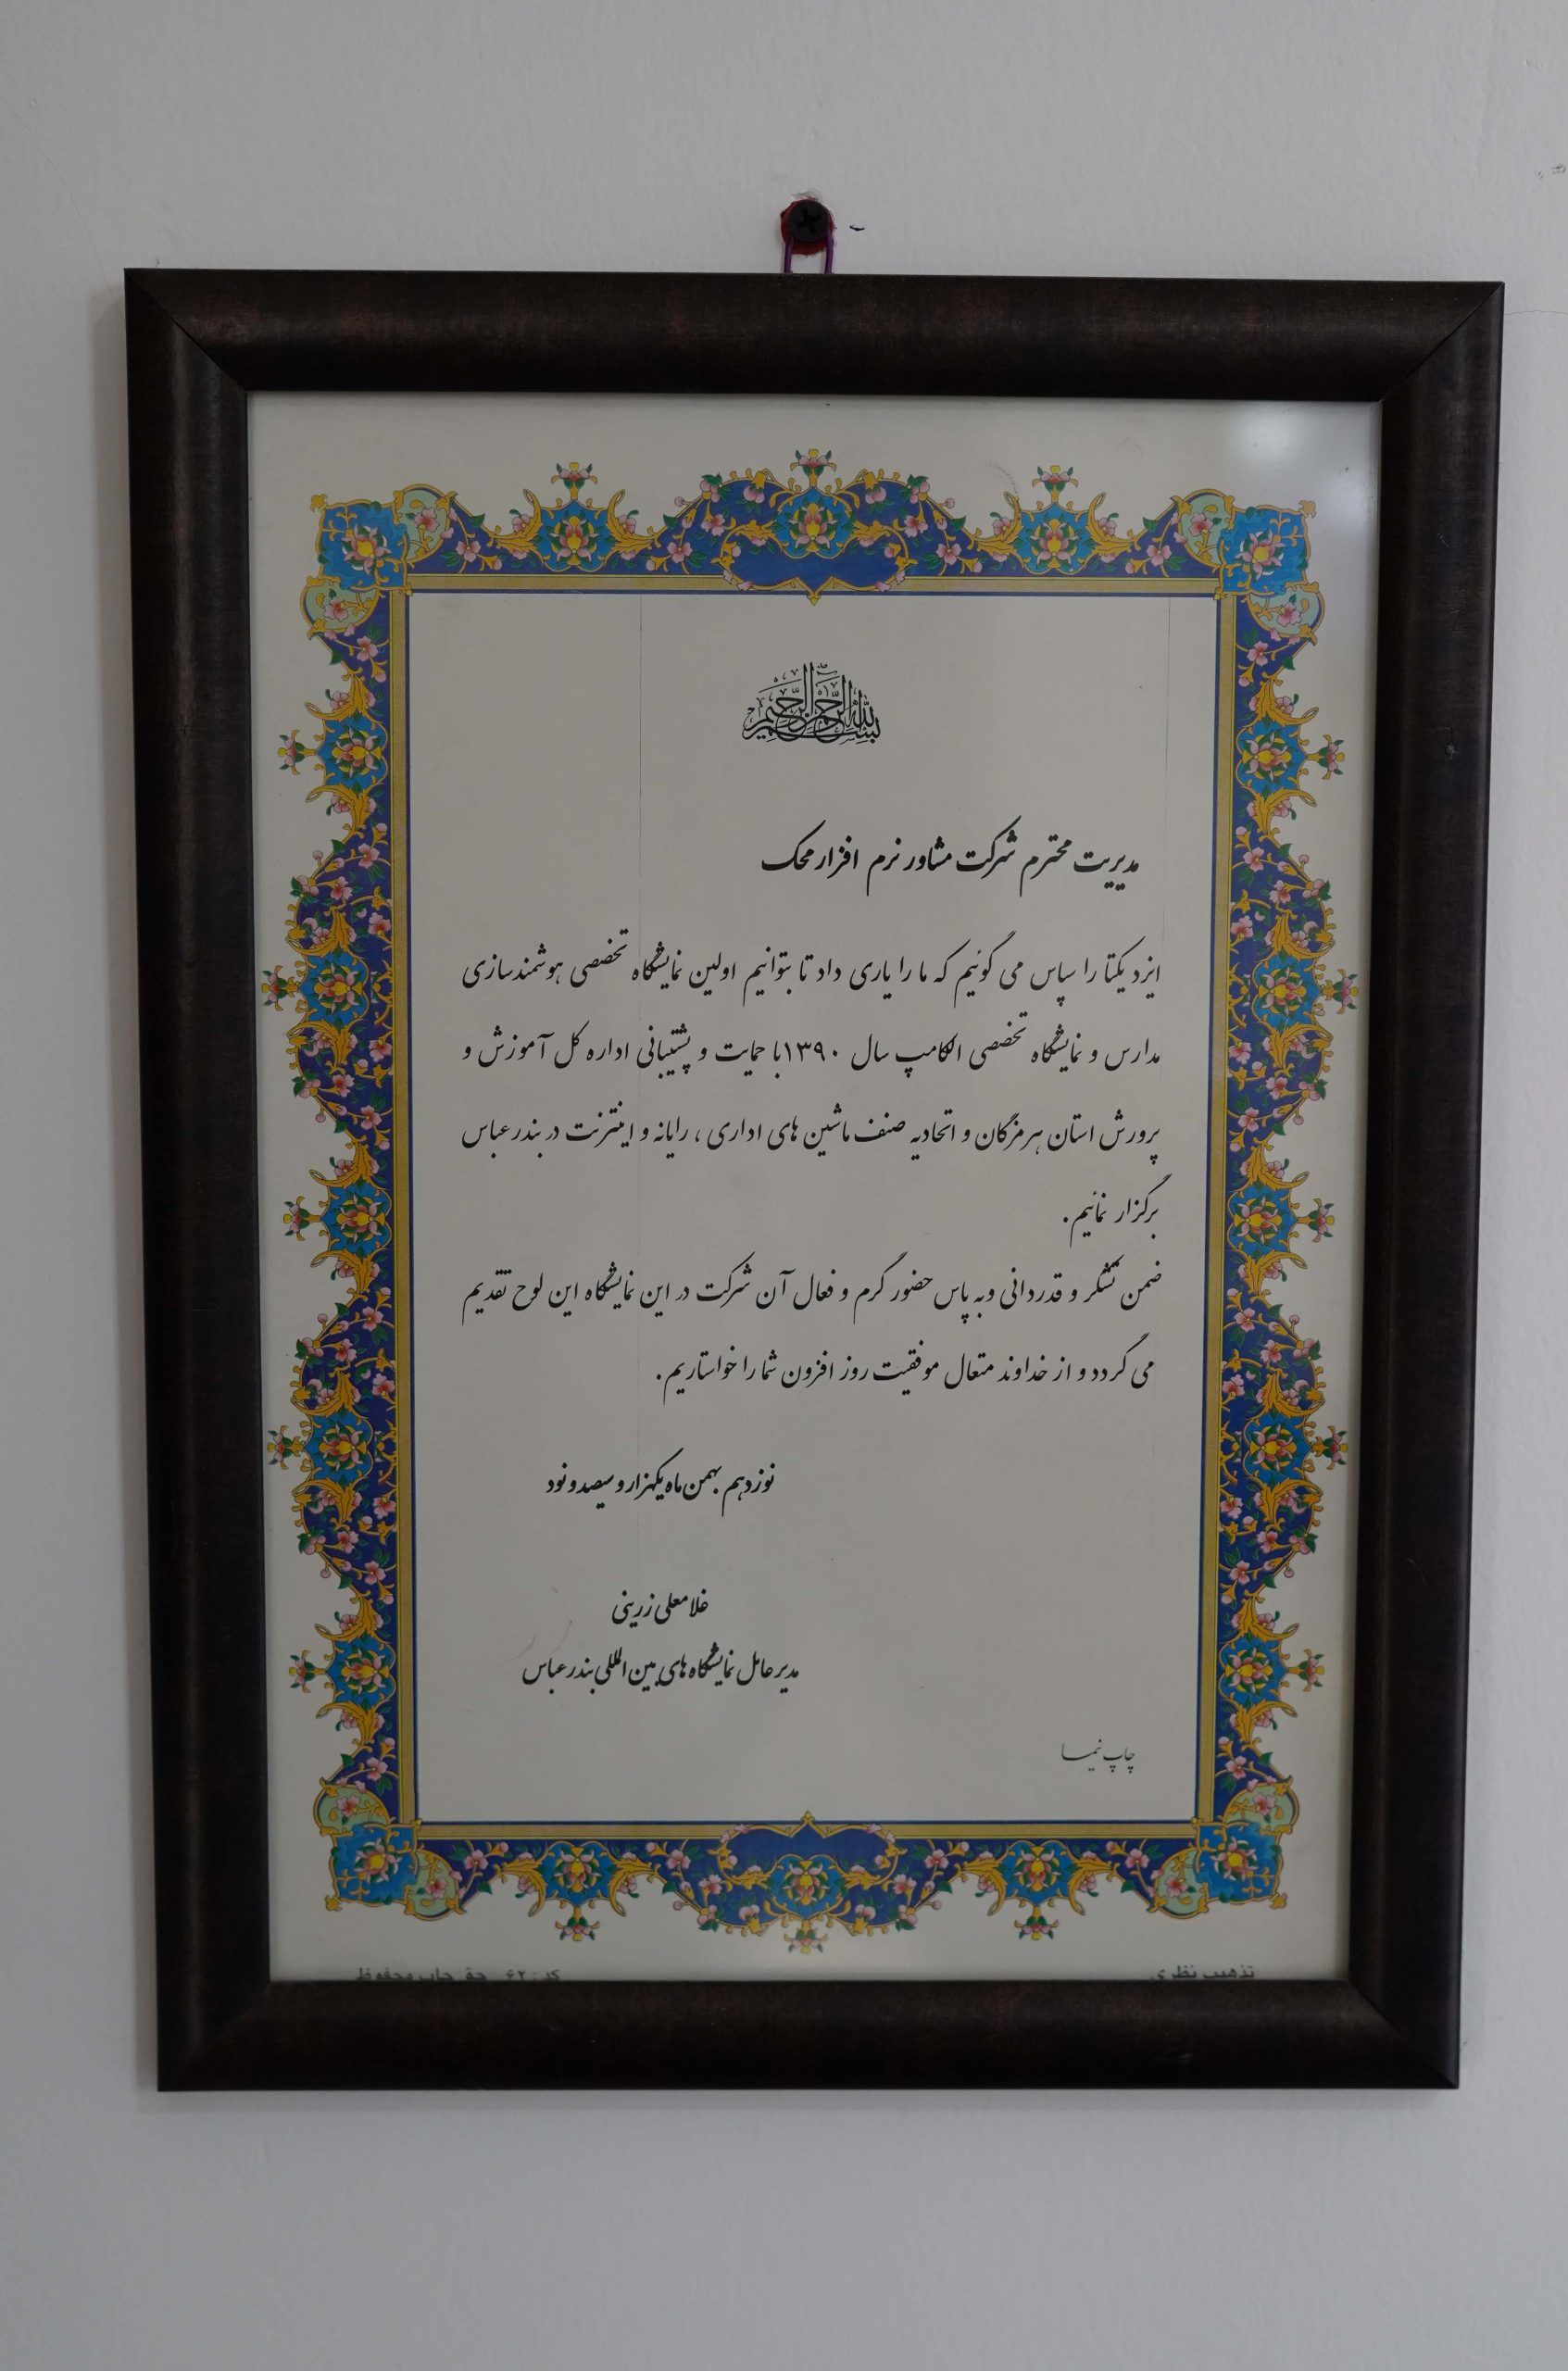 بسم الله الرحمن الرحیم
مدیریت محترم شرکت مشاور نرم افزار محک
ایزد یکتا را سپاس می گوئیم که ما را یاری داد تا بتوانیم اولین نمایشگاه تخصصی هوشمندسازی
مدارس و نمایشگاه تخصصی الکامپ سال ۱۳۹۰با حمایت و پشتیبانی اداره کل آموزش و
پرورش استان هرمزگان و اتحادیه صنف ماشین های اداری ، رایانه و اینترنت در بندرعباس
برگزار نمائیم.
ضمن تشکر و قدردانی وبه پاس حضور گرم و فعال آن شرکت در این نمایشگاه این لوح تقدیم
می گردد و از خداوند متعال موفقیت روز افزون شما را خواستاریم.
نوزدهم بهمن ماه یکهزار و سیصد و نود
غلامعلی زرینی
مدیرعامل نمایشگاه های بین المللی بندرعباس
چاپ نیما
تذهیب نظری
کد: ۶۲ حق چاپ محفوظ